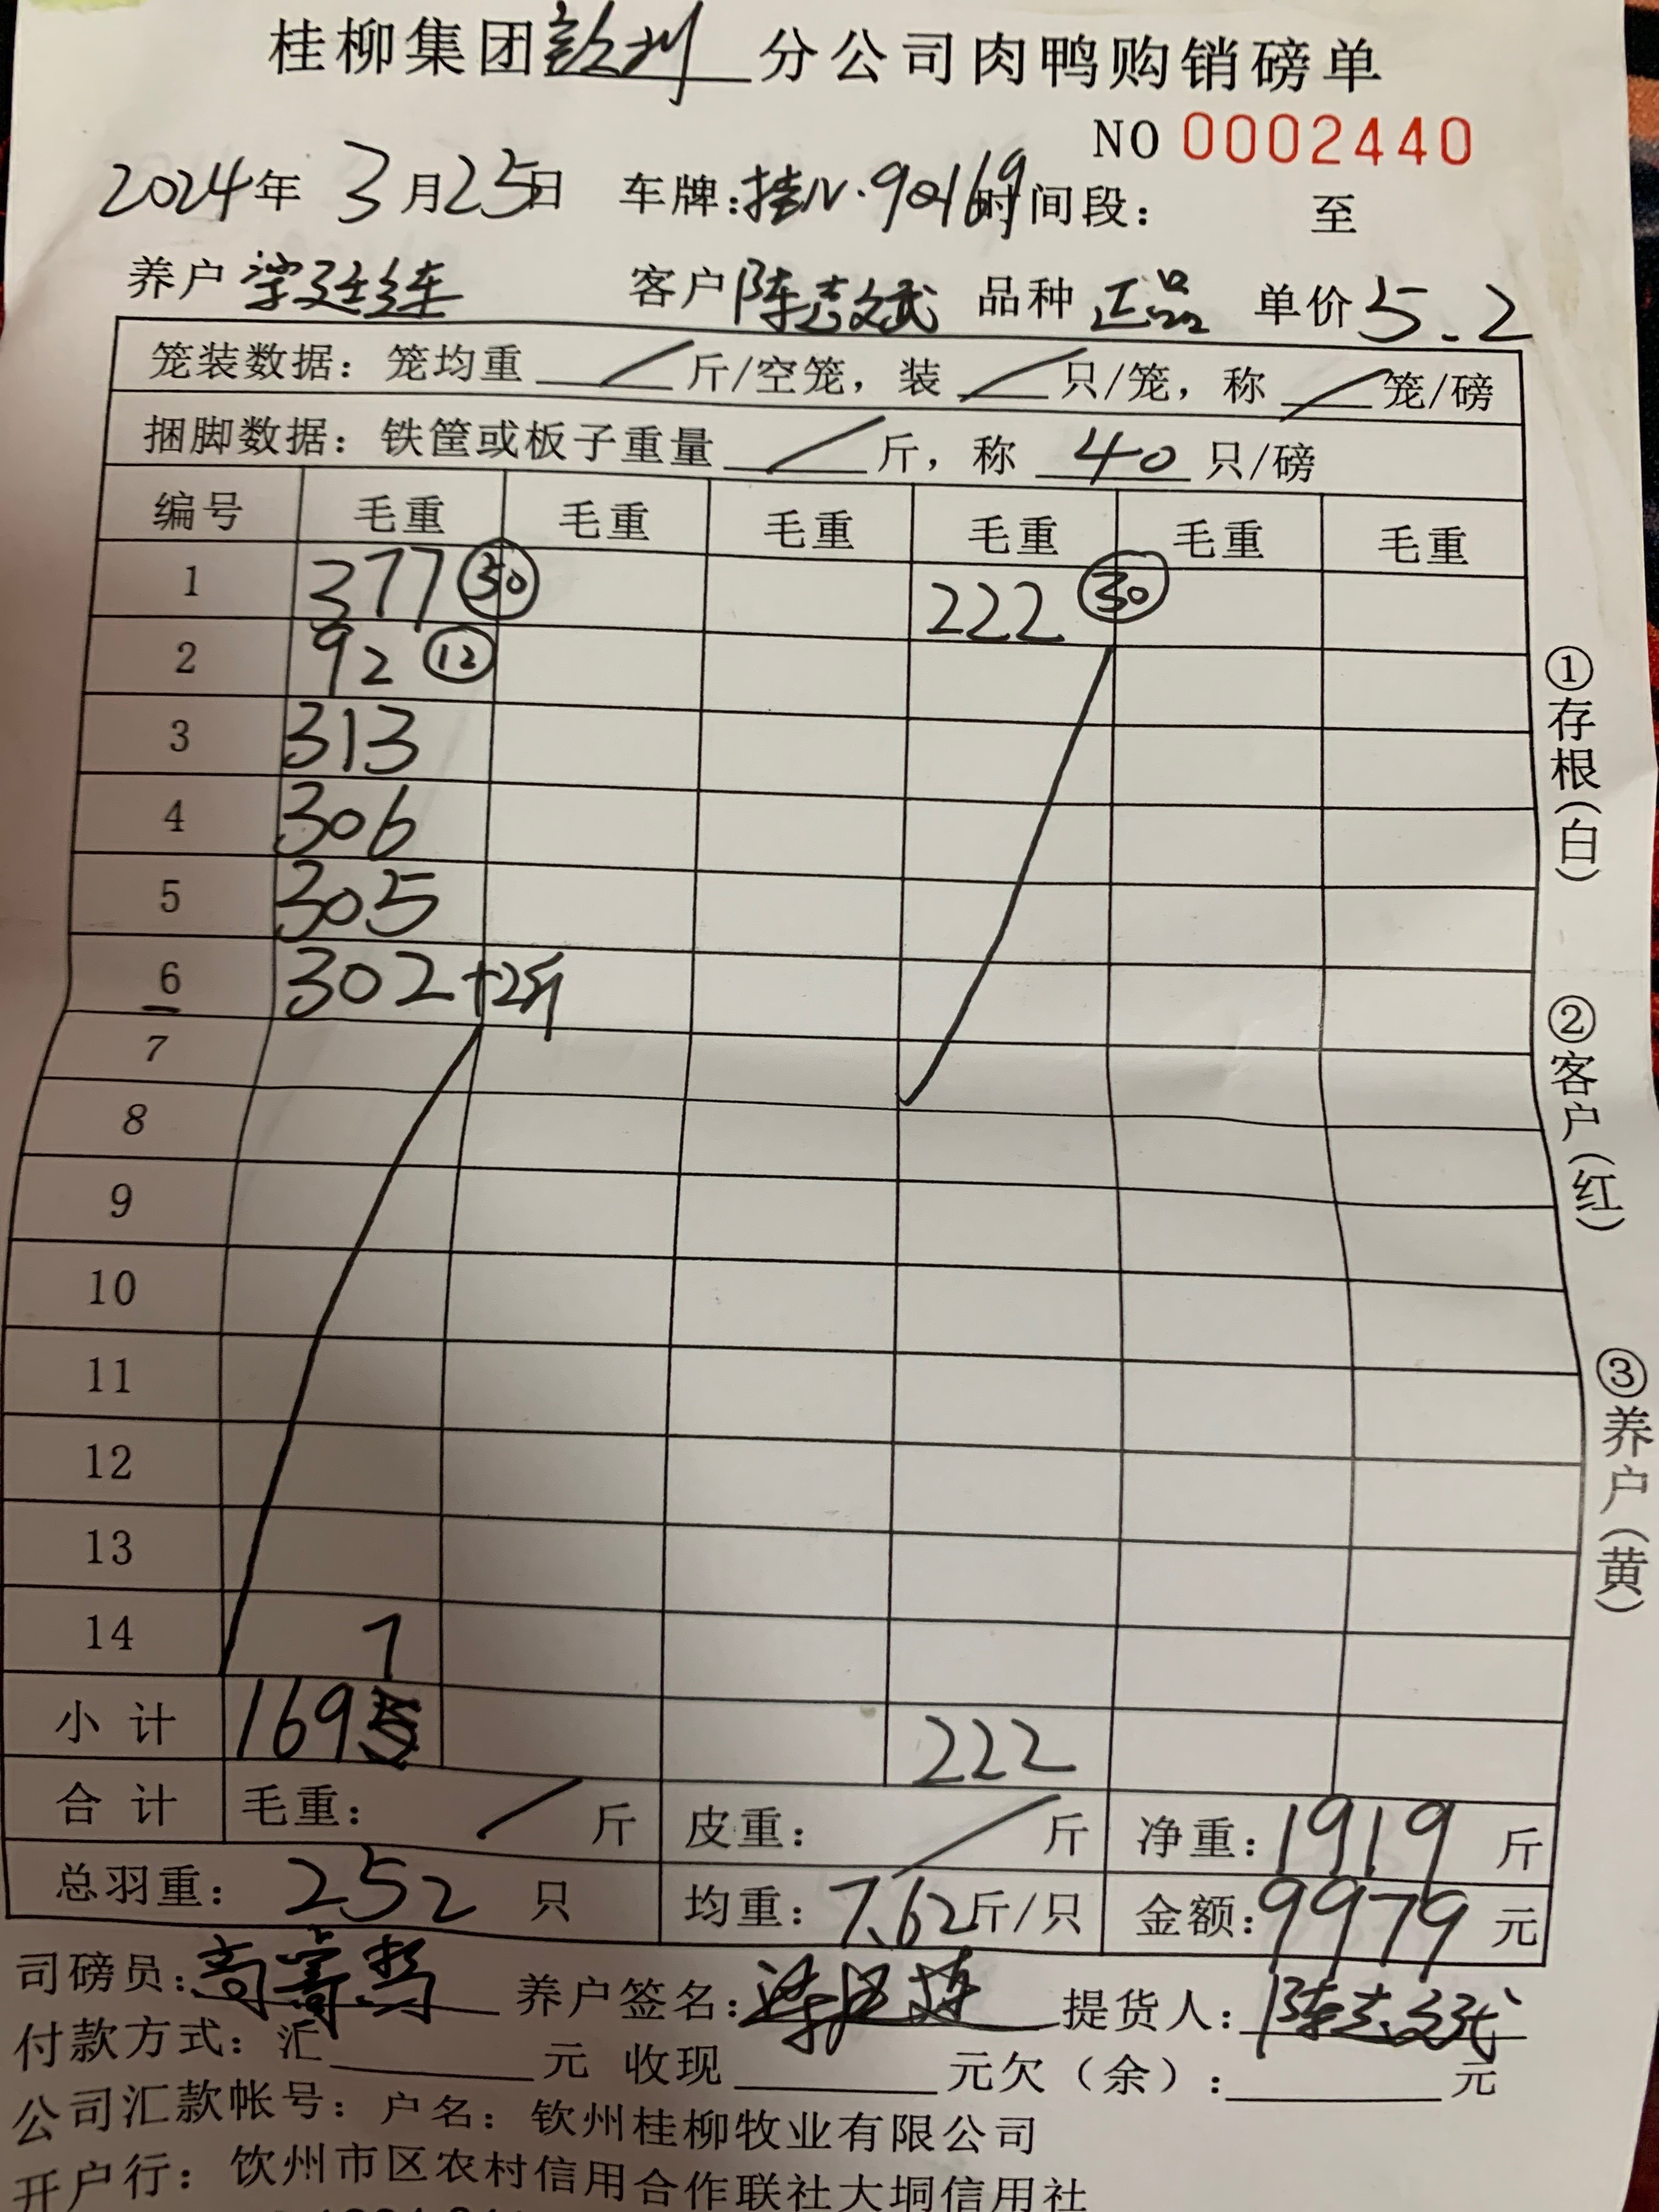 桂柳集团钦州分公司肉鸭购销磅单
NO 0002440
2024年 3月25日 车牌:桂N·90169 时间段: 至
养户 客户 陈志斌 品种 正品 单价 5.2
笼装数据: 笼均重 / 斤/空笼, 装 / 只/笼, 称 / 笼/磅
捆脚数据: 铁筐或板子重量 / 斤, 称 40 只/磅
编号 毛重 毛重 毛重 毛重 毛重 毛重
1 377 50 222 30
2 92 12
3 313
4 306
5 305
6 302+2斤
7
8
9
10
11
12
13
14
小计 1697 222
合计 毛重: / 斤 皮重: / 斤 净重: 1919 斤
总羽重: 252 只 均重: 7.62 斤/只 金额: 9979 元
司磅员: 养户签名: 提货人: 陈志斌
付款方式: 汇 元 收现 元欠(余): 元
公司汇款帐号: 户名: 钦州桂柳牧业有限公司
开户行: 钦州市区农村信用合作联社大垌信用社
①存根(白)
②客户(红)
③养户(黄)